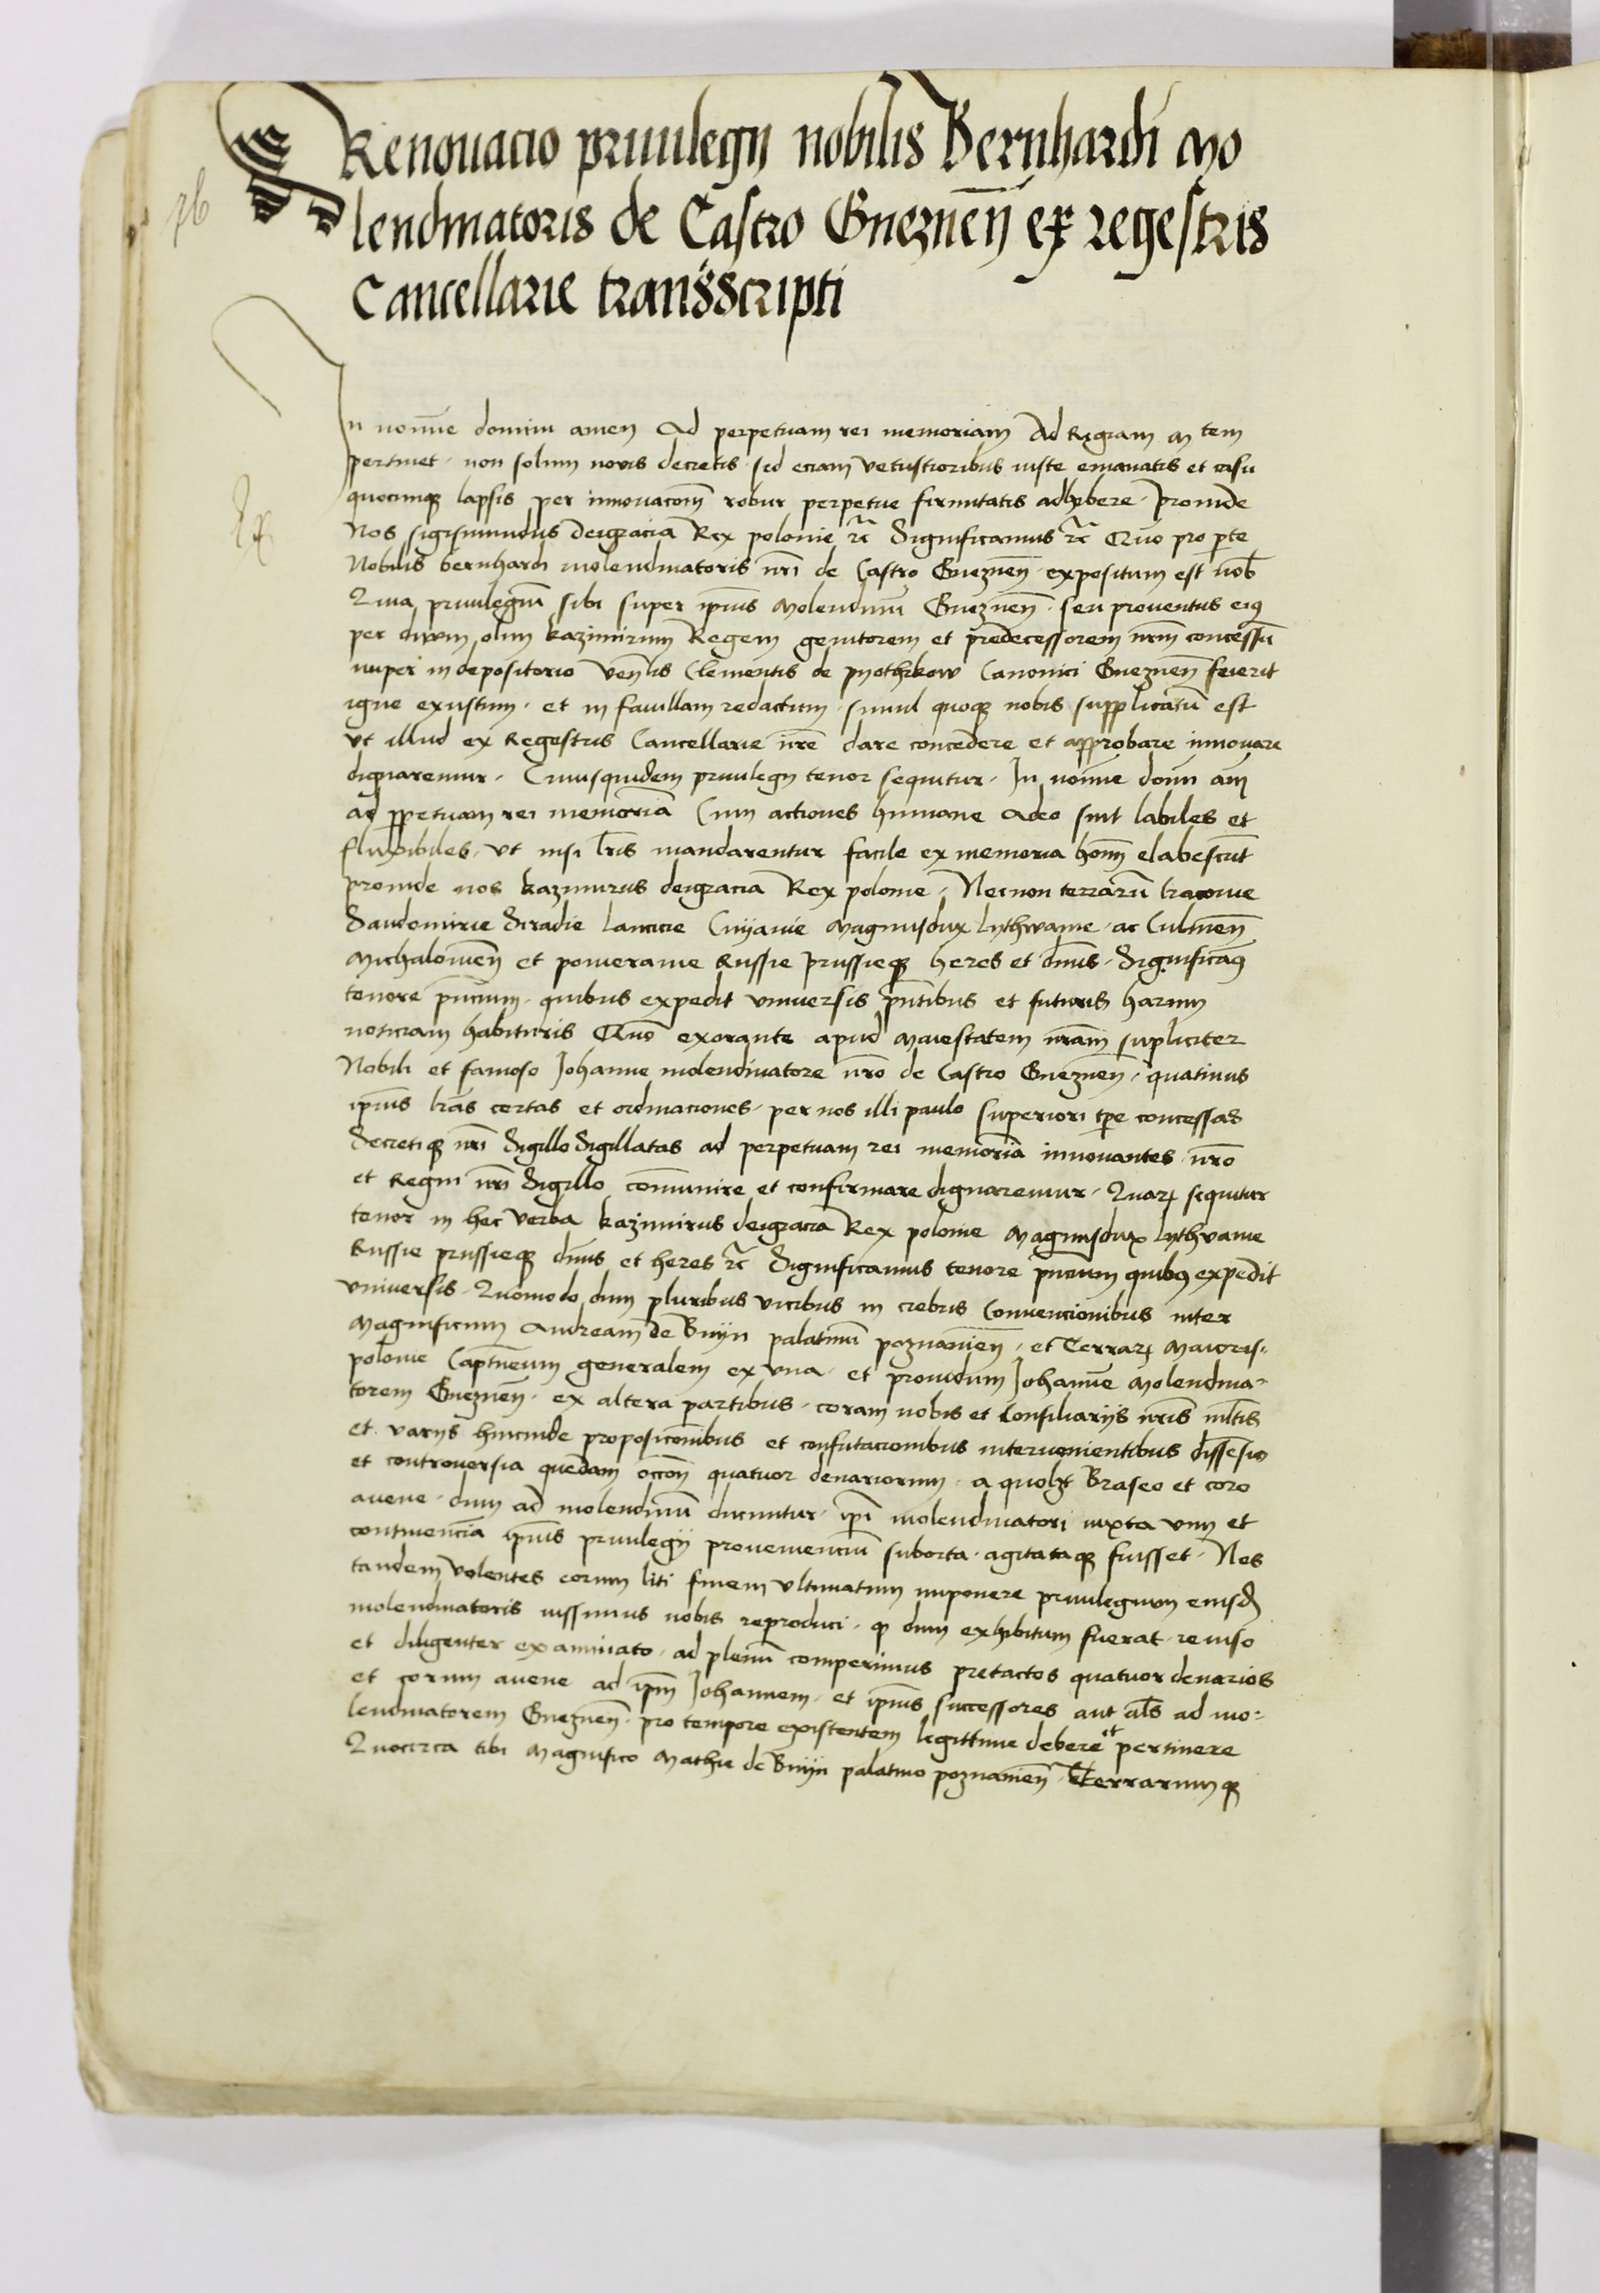 Renouacio priuilegij nobilis Bernhardi Mo
lendinatoris de Castro Gneznen̄ ex regestris
Cancellarie transscripti
In nomīe domini amen Ad perpetuam rei memoriam Ad Regiam M tem
pertinet · non solum nouis decretis · sed eciam vetustioribus iuste emanatis et casu
quocumqꝫ lapsis per innouacōm robur perpetue firmitatis adhibere · Proinde
Nos Sigismundus deigracia Rex polonie ⁊c̄ Significamus ⁊c̄ Quō pro pte
Nobilis bernhardi molendinatoris nr̄i de Castro Gneznen̄ · expositum est nob̄
Quia priuilegiū sibi super ipīus Molendinū Gneznen̄ · seu prouentus eiꝰ
per diuum olim kazimirum Regem genitorem et predecessorem nr̄m concessū
nuper in depositorio Ven̄lis Clementis de pyothrkow Canonici Gneznen̄ fuerit
igne exustum · et in fauillam redactum · simul quoqꝫ nobis supplicatū est
vt illud ex Regestris Cancellarie nr̄e dare concedere et approbare innouare
dignaremur · Cuiusquidem priuilegij tenor sequitur · In nomīe domī am̄
ad ppetuam rei memoriā Cum actiones humane adeo sint labiles et
fluxibiles · vt nisi lr̄is mandarentur facile ex memoria hom̄ elabescūt
proinde nos kazimirus deigracia Rex polonie · Necnon terrarū Cracouie
Sandomirie Siradie Lancicie Cuyauie Magnusdux lythwanie · ac Culmen̄
Michalouien̄ et pomeranie Russie prussieqꝫ heres et dn̄us · Significamꝰ
tenore pn̄cium · quibus expedit vniuersis pn̄tibus et futuris harum
noticiam habituris Quō exorante apud Maiestatem nr̄am supliciter
Nobili et famoso Johanne molendinatore nr̄o de Castro Gneznen̄ · quatinus
ipīus lr̄as certas et ordinaciones · per nos illi paulo superiori tpe concessas
Secretiqꝫ nr̄i Sigillo Sigillatas ad perpetuam rei memoriā innouantes nr̄o
et Regni nr̄i Sigillo com̄unire et confirmare dignaremur · Quarꝫ sequitur
tenor in hec verba kazimirus deigracia Rex polonie Magnusdux lythvanie
Russie prussieqꝫ dn̄us et heres ⁊c̄ Significamus tenore pn̄cium quibꝰ expedit
vniuersis · Quomodo dum pluribus vicibus in crebris Conuencionibus inter
Magnificum Andream de Bnyn palatinū poznanien̄ · et Terrarꝫ Maioris·
polonie Captneum generalem ex vna · et prouidum Johannē Molendina-
torem Gneznen̄ · ex altera partibus · coram nobis et Consiliarijs nr̄is ml̄tis
et varijs hincinde proposicōnibus et confutacionibus interuenientibus dissensio
et controuersia quedam occ̄on̄ quatuor denariorum · a quolꝫt Braseo et coro
auene · dum ad molendinū ducuntur · ip̄i molendinatori iuxta vim et
continenciā ipīus priuilegij prouenienciū suborta · agitataqꝫ fuisset · Nos
tandem volentes eorum liti finem vltimatum imponere priuilegium eiusd̄
molendinatoris iussimus nobis reproduci · qꝫ dum exhibitum fuerat · reuiso
et diligenter examinato · ad plenū comperimus pretactos quatuor denarios
et corum auene ad ip̄m Johannem · et ipīus successores aut al̄s ad mo-
lendinatorem Gneznen̄ · pro tempore existentem legittime debere et pertinere
Quocirca tibi Magnifico Mathie de Bnyn palatino poznanien̄ · Terrarumqꝫ